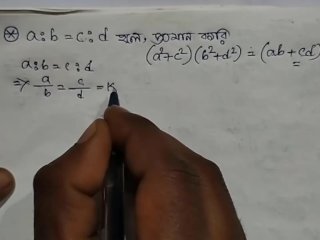 ⊛ a:b = c:d হলে, প্রমাণ করি
(a²+c²)(b²+d²) = (ab+cd)
a:b = c:d
⇒ a/b = c/d = K